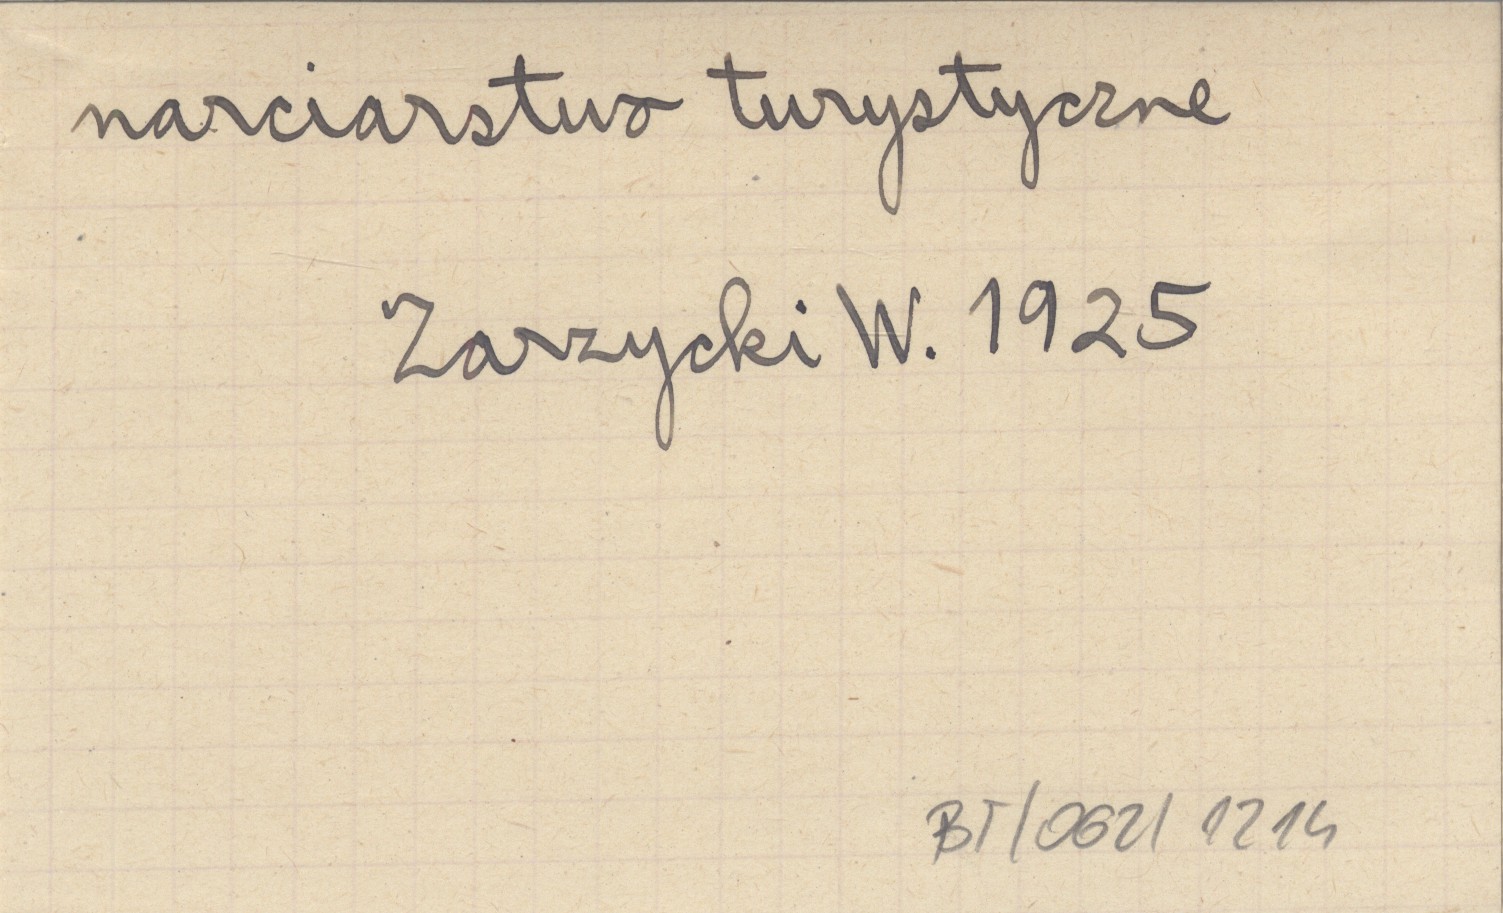 narciarstwo turystyczne
Zarzycki W. 1925
BT/062/ 1214